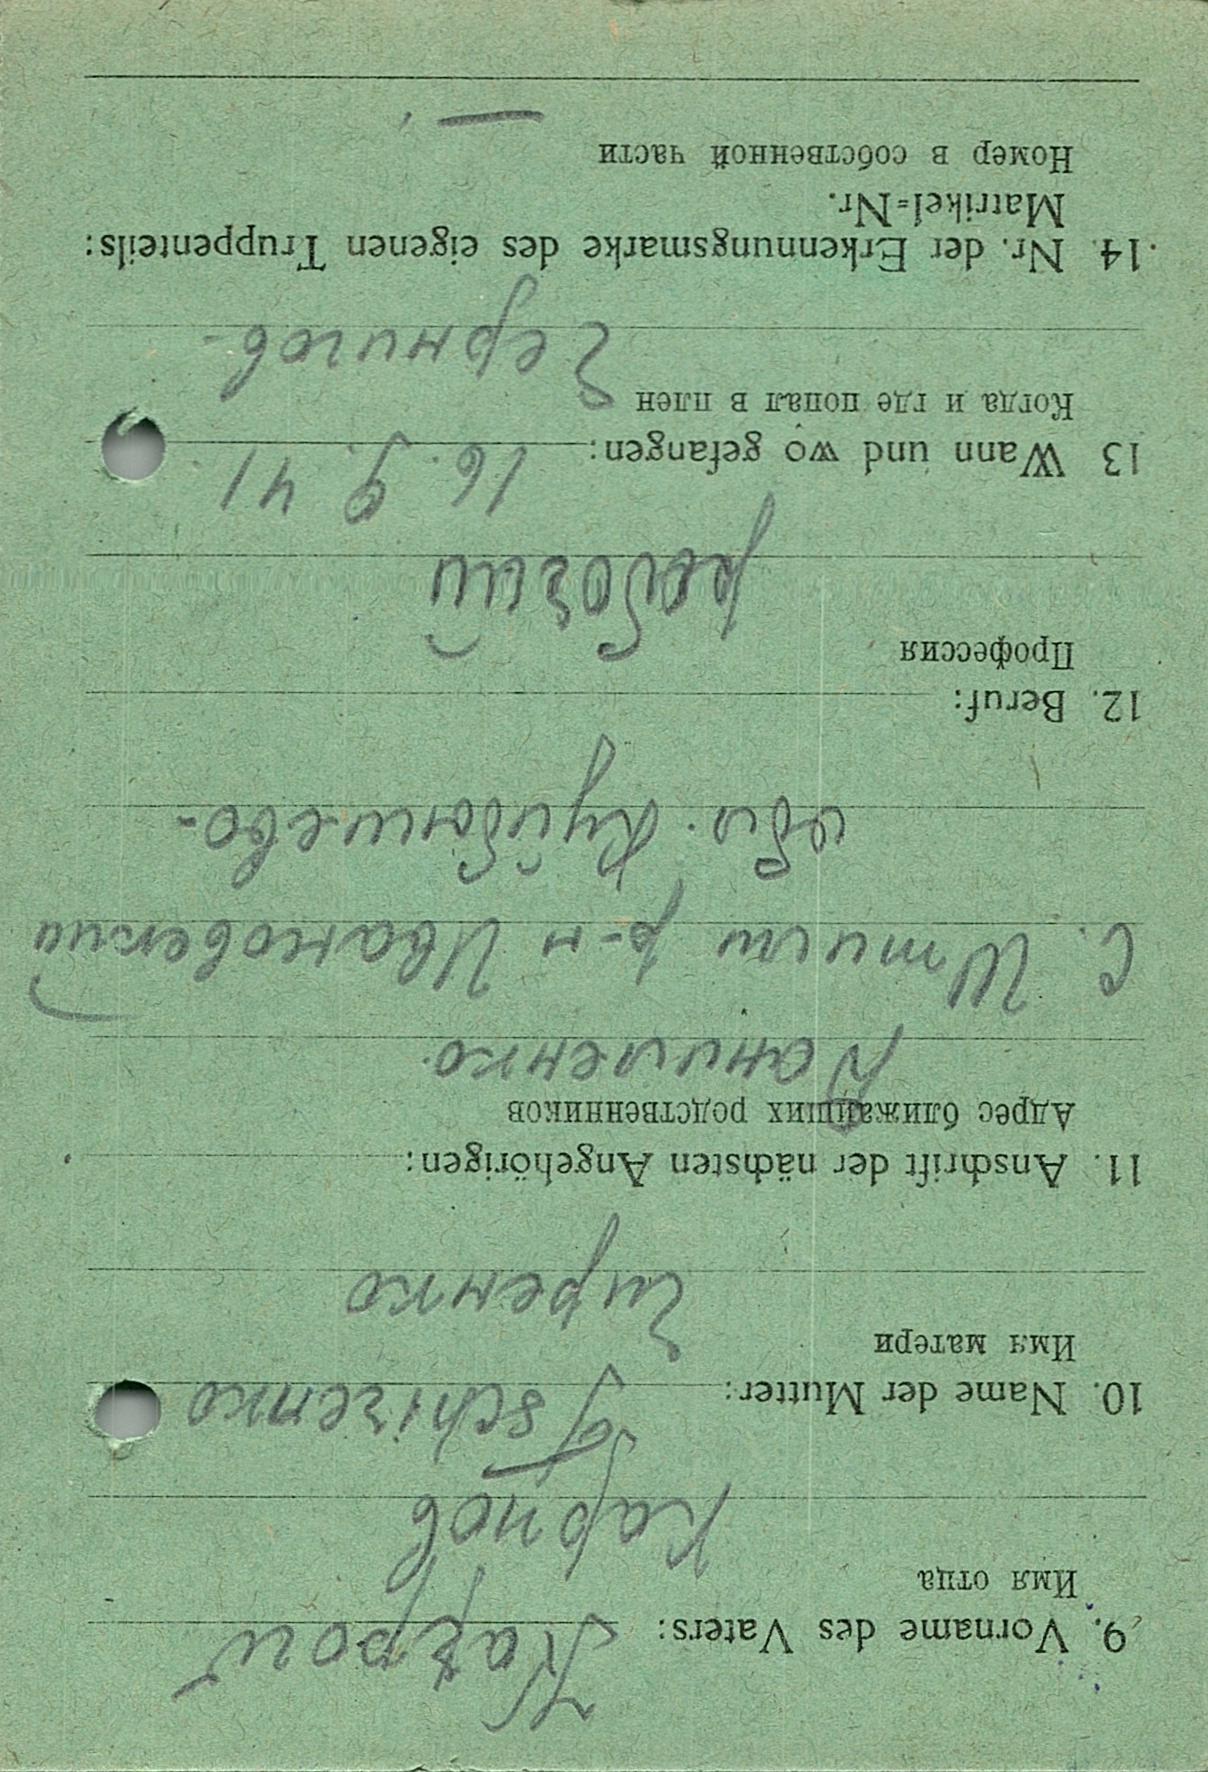 9. Vorname des Vaters: Карpow
Имя отца
Карпов
10. Name der Mutter: Tschirenko
Имя матери
Чиренко
11. Anschrift der nächsten Angehörigen:
Адрес ближайших родственников
с. р-н Ивановский
обл. Куйбышево-
12. Beruf:
Профессия
рабочий
13 Wann und wo gefangen: 16. 9. 41
Когда и где попал в плен
Чернигов-
14. Nr. der Erkennungsmarke des eigenen Truppenteils:
Matrikel=Nr.
Номер в собственной части
—